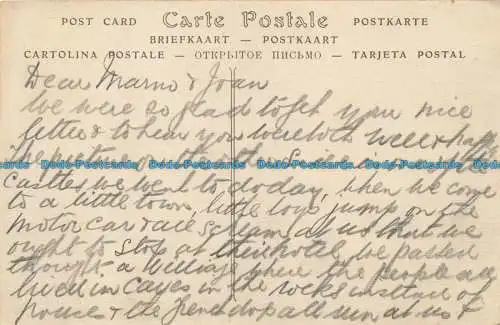 POST CARD Carte Postale POSTKARTE
BRIEFKAART — POSTKAART
CARTOLINA POSTALE — ОТКРЫТОЕ ПИСЬМО — TARJETA POSTAL
Dear Marno & Joan
We were so glad to get you nice
letter & to hear you were both well & happy
the picture on the other side is
castles we went to today, when we come
to a little town, little boys jump on the
motor car & all scream at us that we
ought to stop at their hotel, we passed
through a village where the people all
lived in caves in the rocks instead of
houses & the french dop all run at us &